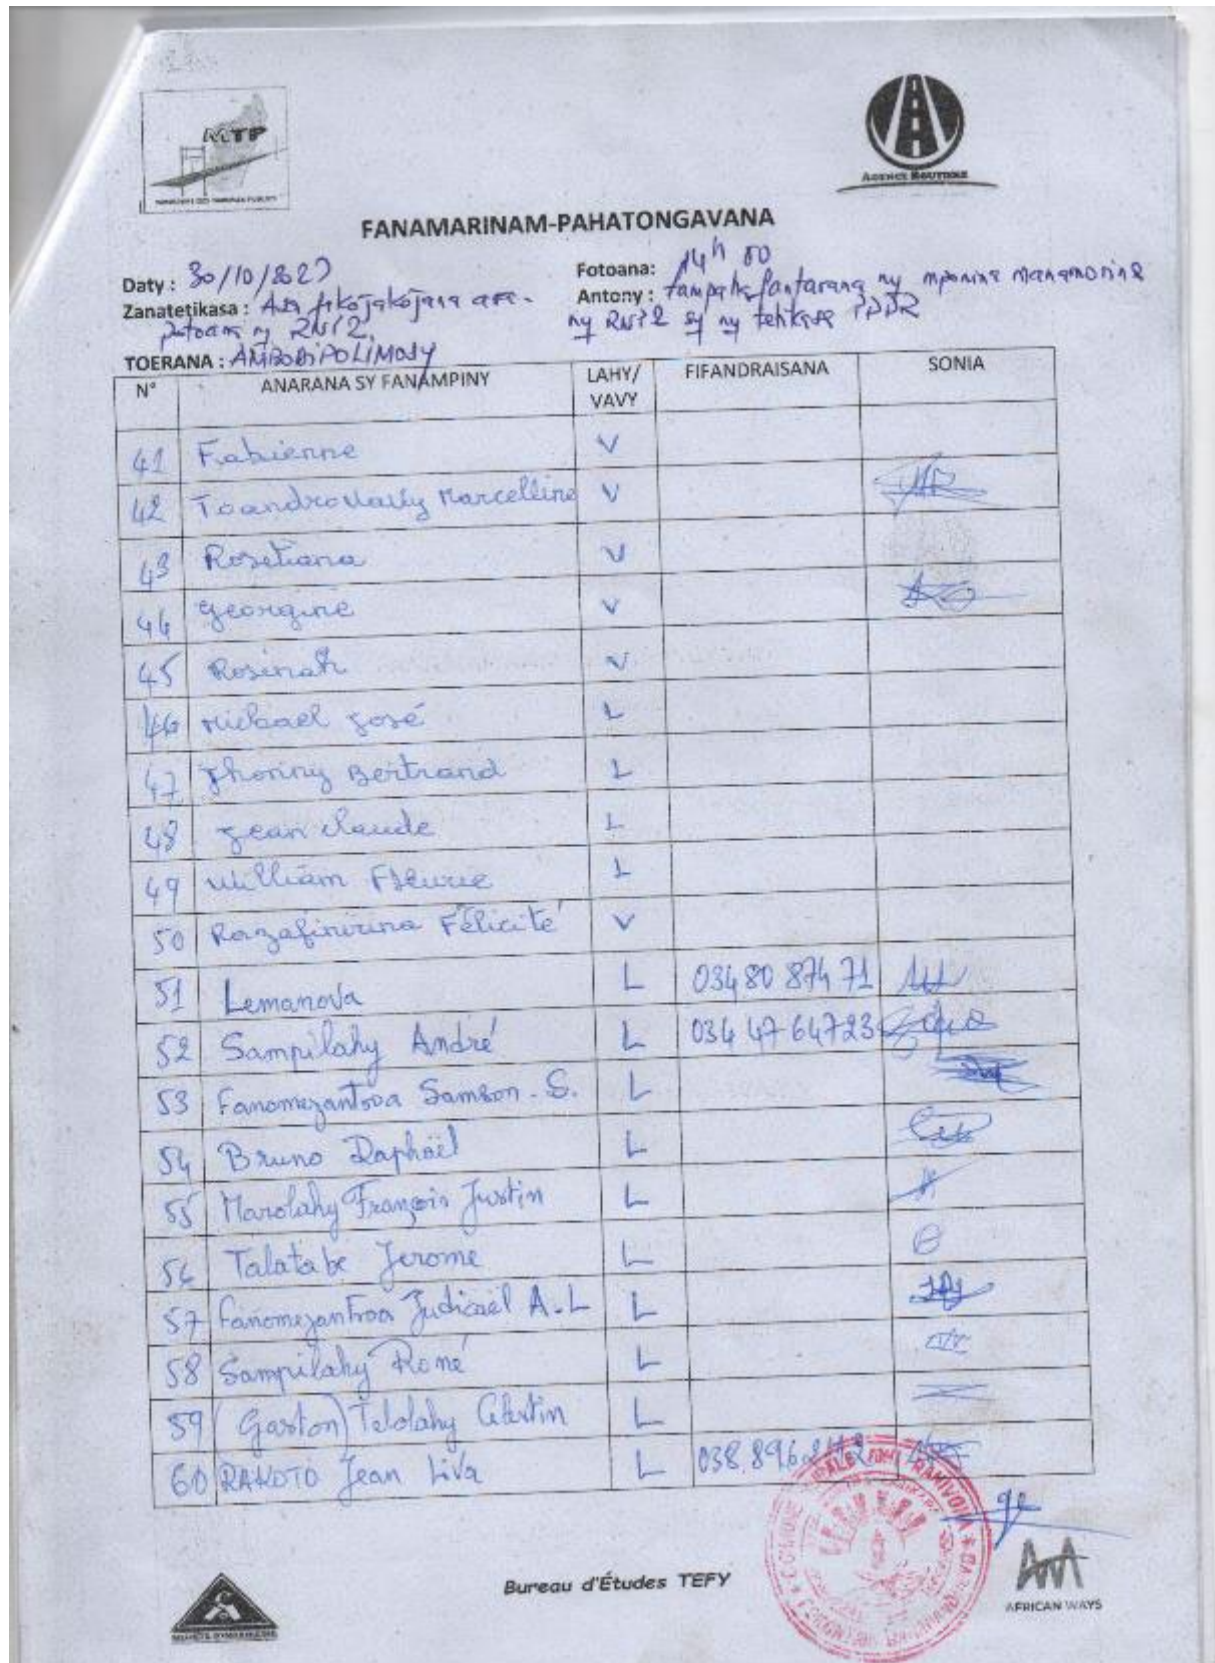 MTP
AGENCE ROUTIERE
FANAMARINAM-PAHATONGAVANA
Daty : 30/10/2023
Fotoana: 14h 00
Zanatetikasa : Asa fikojakojana ara-
potoana ny RNT2.
Antony : fampahafantarana ny mponina manamorina
ny RNT2 sy ny tetikasa PDDR
TOERANA : AMBODIPOLIMOSY
N° ANARANA SY FANAMPINY LAHY/ VAVY FIFANDRAISANA SONIA
41 Fabienne V
42 Toandrovavy Marcelline V
43 Rosetiana V
44 Georgine V
45 Rosinah V
46 Mickael José L
47 Jhonny Bertrand L
48 Jean Claude L
49 William Fleurie L
50 Razafinirina Félicité V
51 Lemanova L 034 80 874 71
52 Sampilahy André L 034 47 647 23
53 Fanomezantsoa Samson - S. L
54 Bruno Raphaël L
55 Marolahy François Justin L
56 Talatabe Jerome L
57 Fanomezantsoa Judicaël A.L L
58 Sampilahy Roné L
59 (Gaston) Telolahy Célestin L
60 RAKOTO Jean Liva L 038.896
Bureau d'Études TEFY
AFRICAN WAYS